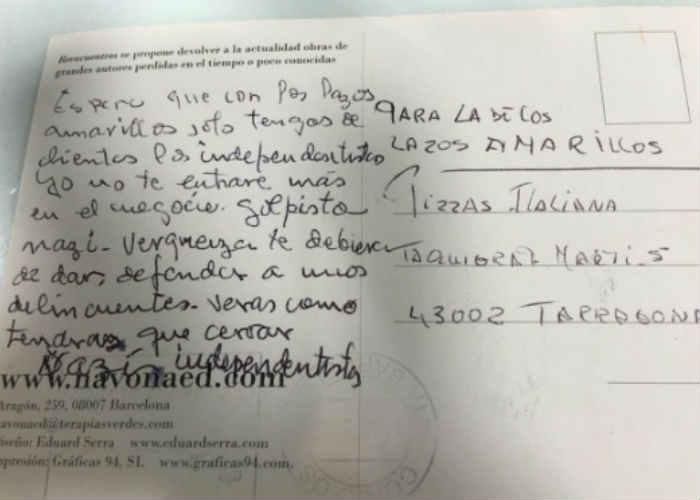 Reencuentros se propone devolver a la actualidad obras de
grandes autores perdidas en el tiempo o poco conocidas
Espero que con los lazos
amarillos solo tengas de
clientes los independentistas
yo no te entrare más
en el negocio. golpista
nazi. verguenza te debiera
de dar, defender a unos
delincuentes. veras como
tendras que cerrar
Nazis independentistas
www.navonaed.com
Aragón, 259, 08007 Barcelona
navonaed@terapiasverdes.com
Diseño: Eduard Serra www.eduardserra.com
Impresión: Gráficas 94, SL www.graficas94.com.
PARA LA DE LOS
LAZOS AMARILLOS
Pizzas Italiana
TAQUIGRAF MARTI. 5
43002 TARRAGONA